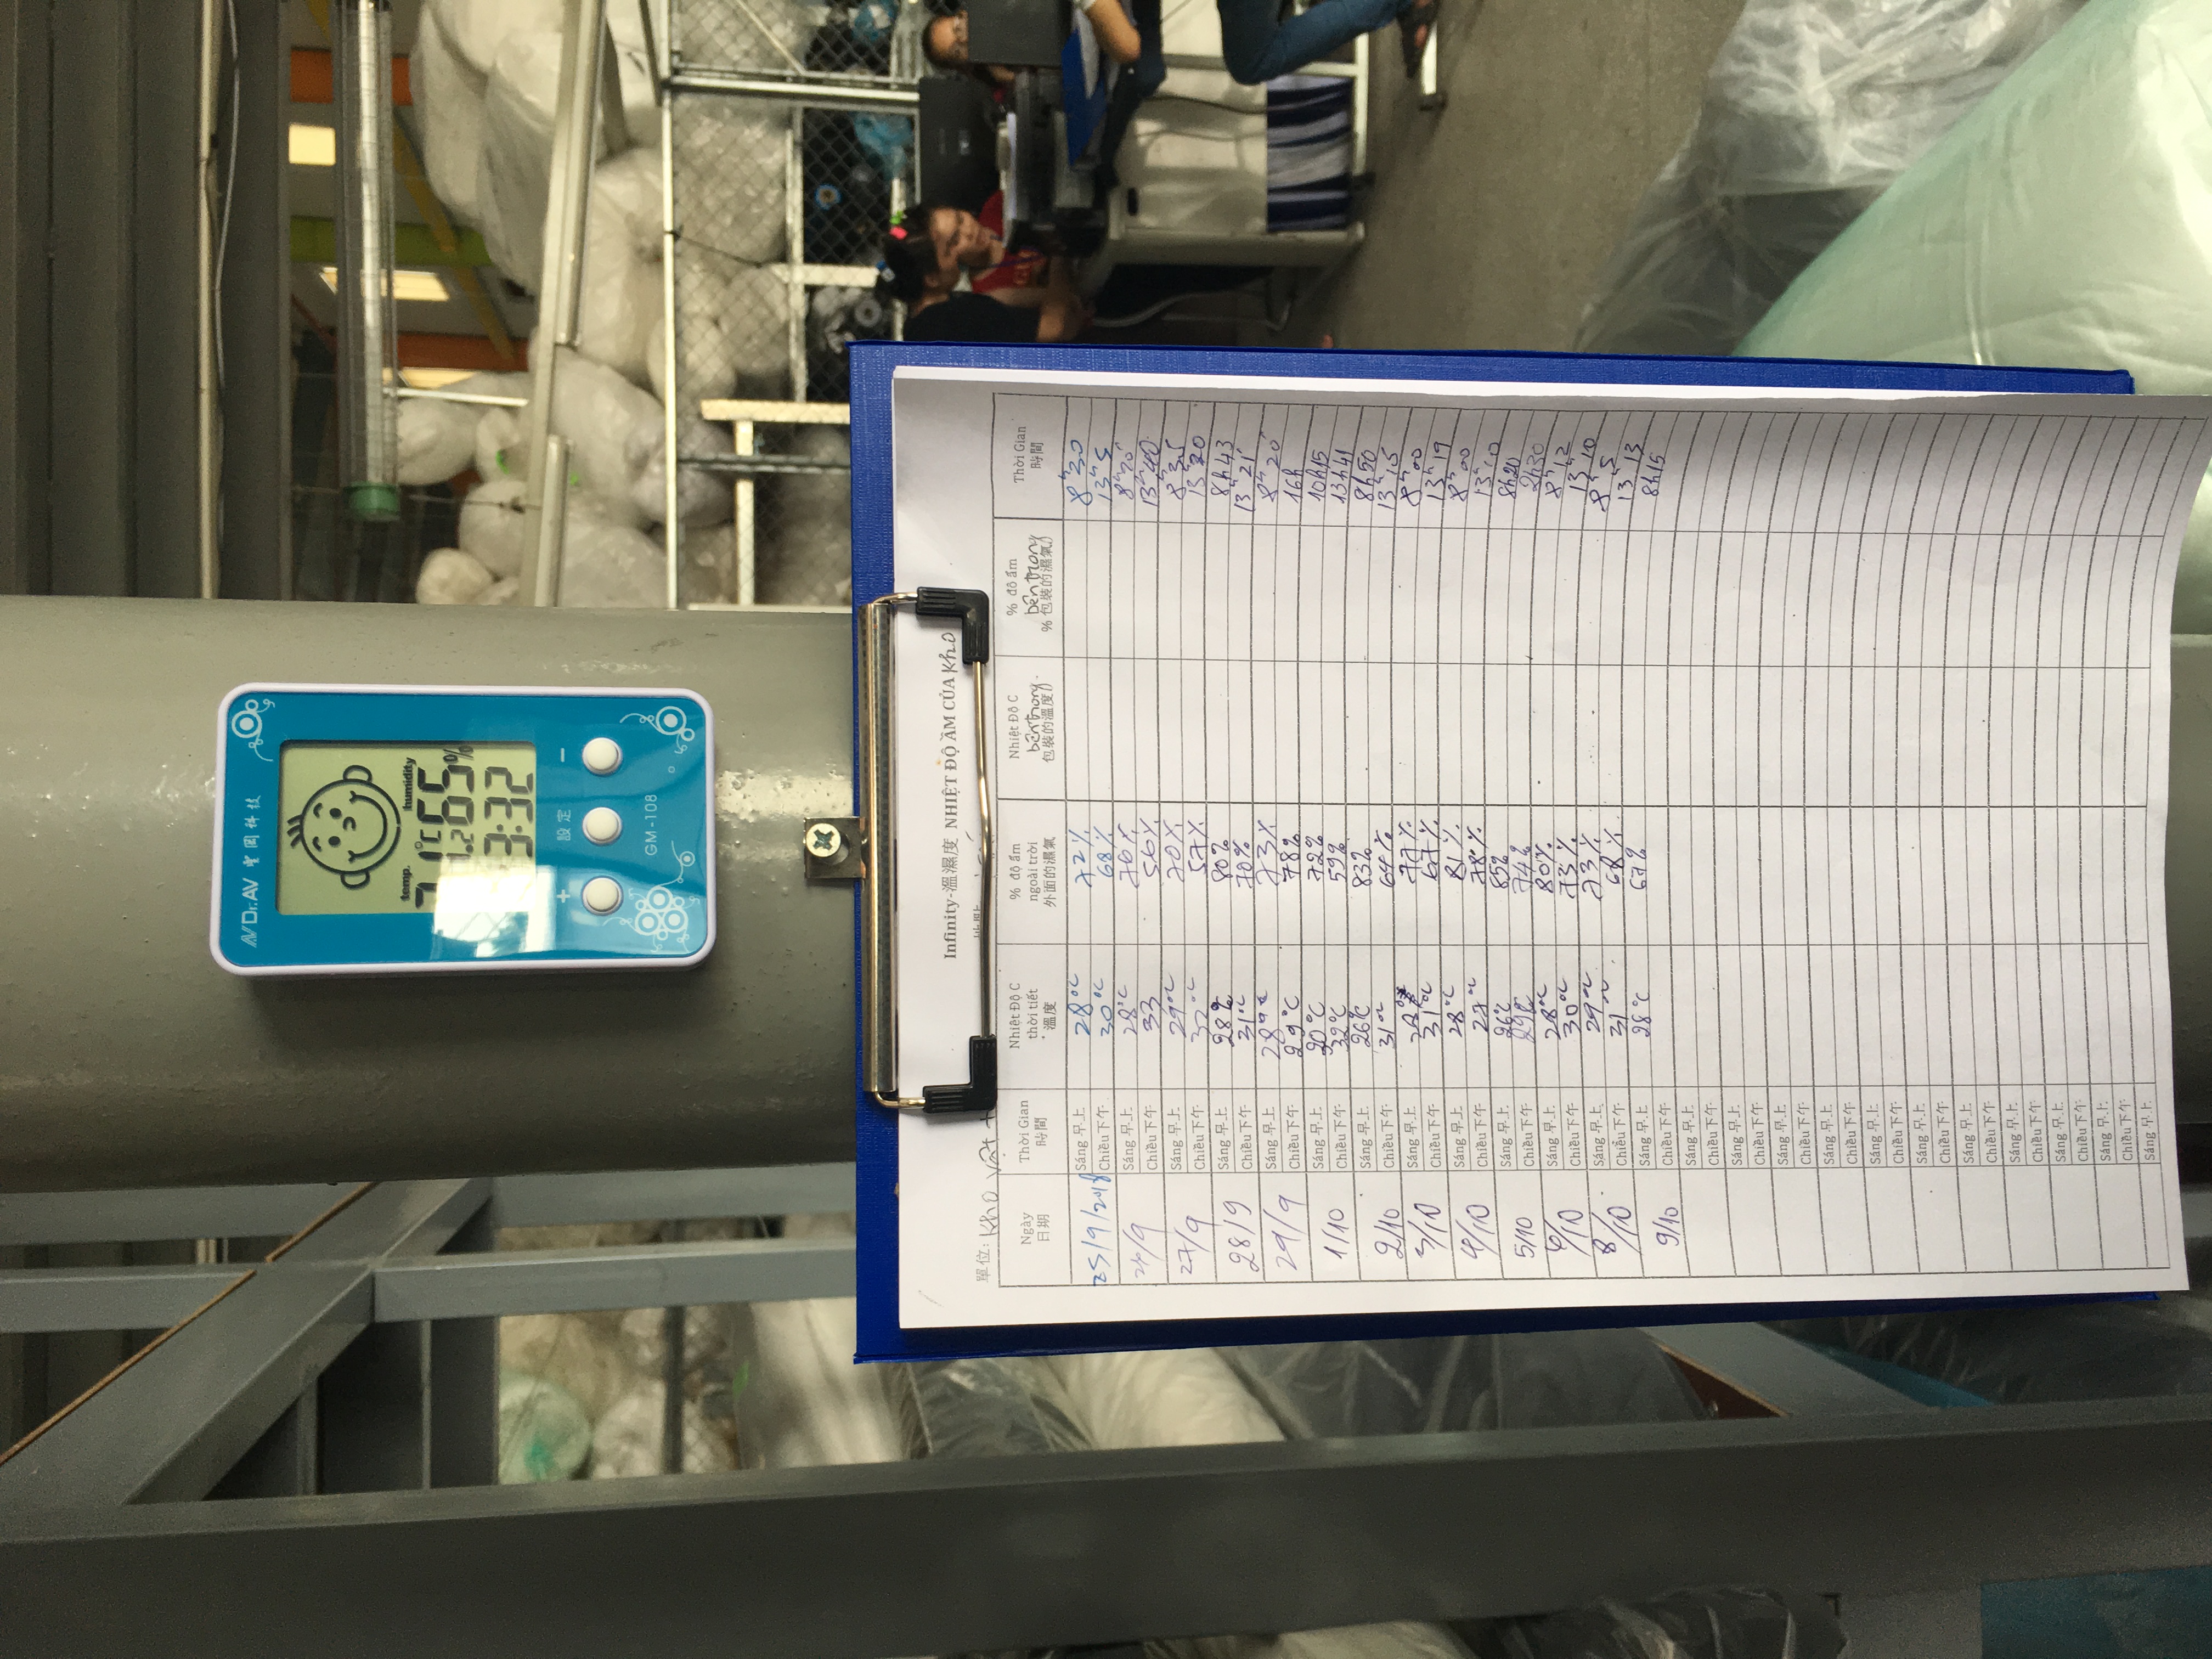 Dr.AV 聖岡科技
temp. humidity
31.2°C 65%
3:32
+ 設定 −
GM-108
Infinity-溫濕度 NHIỆT ĐỘ ẨM CỦA Kho
單位: Kho vật
Ngày 日期 Thời Gian 時間 Nhiệt Độ C thời tiết 溫度 % độ ẩm ngoài trời 外面的濕氣 Nhiệt Độ C bên trong 包裝的溫度 % độ ẩm bên trong % 包裝的濕氣 Thời Gian 時間
25/9/2018 Sáng 早上 28°C 72% 8h30
Chiều 下午 30°C 68% 13h5
Sáng 早上 28°C 76%
/9 Chiều 下午 33 56% 13h40
27/9 Sáng 早上 29°C 70% 8h35
Chiều 下午 57%
28/9 Sáng 早上 28°C 80% 8h43
Chiều 下午 31°C 70% 13h21'
29/9 Sáng 早上 28°C 73% 8h20'
Chiều 下午 29°C 78% 16h
1/10 Sáng 早上 72% 10h15
Chiều 下午 32°C 59% 13h41
2/10 Sáng 早上 26°C 83% 8h50
Chiều 下午 31°C 64% 13h15
3/10 Sáng 早上 28° 77% 8h00
Chiều 下午 31°C 67% 13h19
4/10 Sáng 早上 28°C 81% 8h00
Chiều 下午 27°C 78% 13h10
5/10 Sáng 早上 26°C 85% 8h20
Chiều 下午 29°C 74% 2h30
6/10 Sáng 早上 28°C 80% 8h12
Chiều 下午 30°C 73% 13h10
8/10 Sáng 早上 29°C 73% 8h5
Chiều 下午 31°C 68% 13h13
9/10 Sáng 早上 28°C 67% 8h15
Chiều 下午
Sáng 早上
Chiều 下午
Sáng 早上
Chiều 下午
Sáng 早上
Chiều 下午
Sáng 早上
Chiều 下午
Sáng 早上
Chiều 下午
Sáng 早上
Chiều 下午
Sáng 早上
Chiều 下午
Sáng 早上
Chiều 下午
Sáng 早上
Chiều 下午
Sáng 早上
Chiều 下午
Sáng 早上